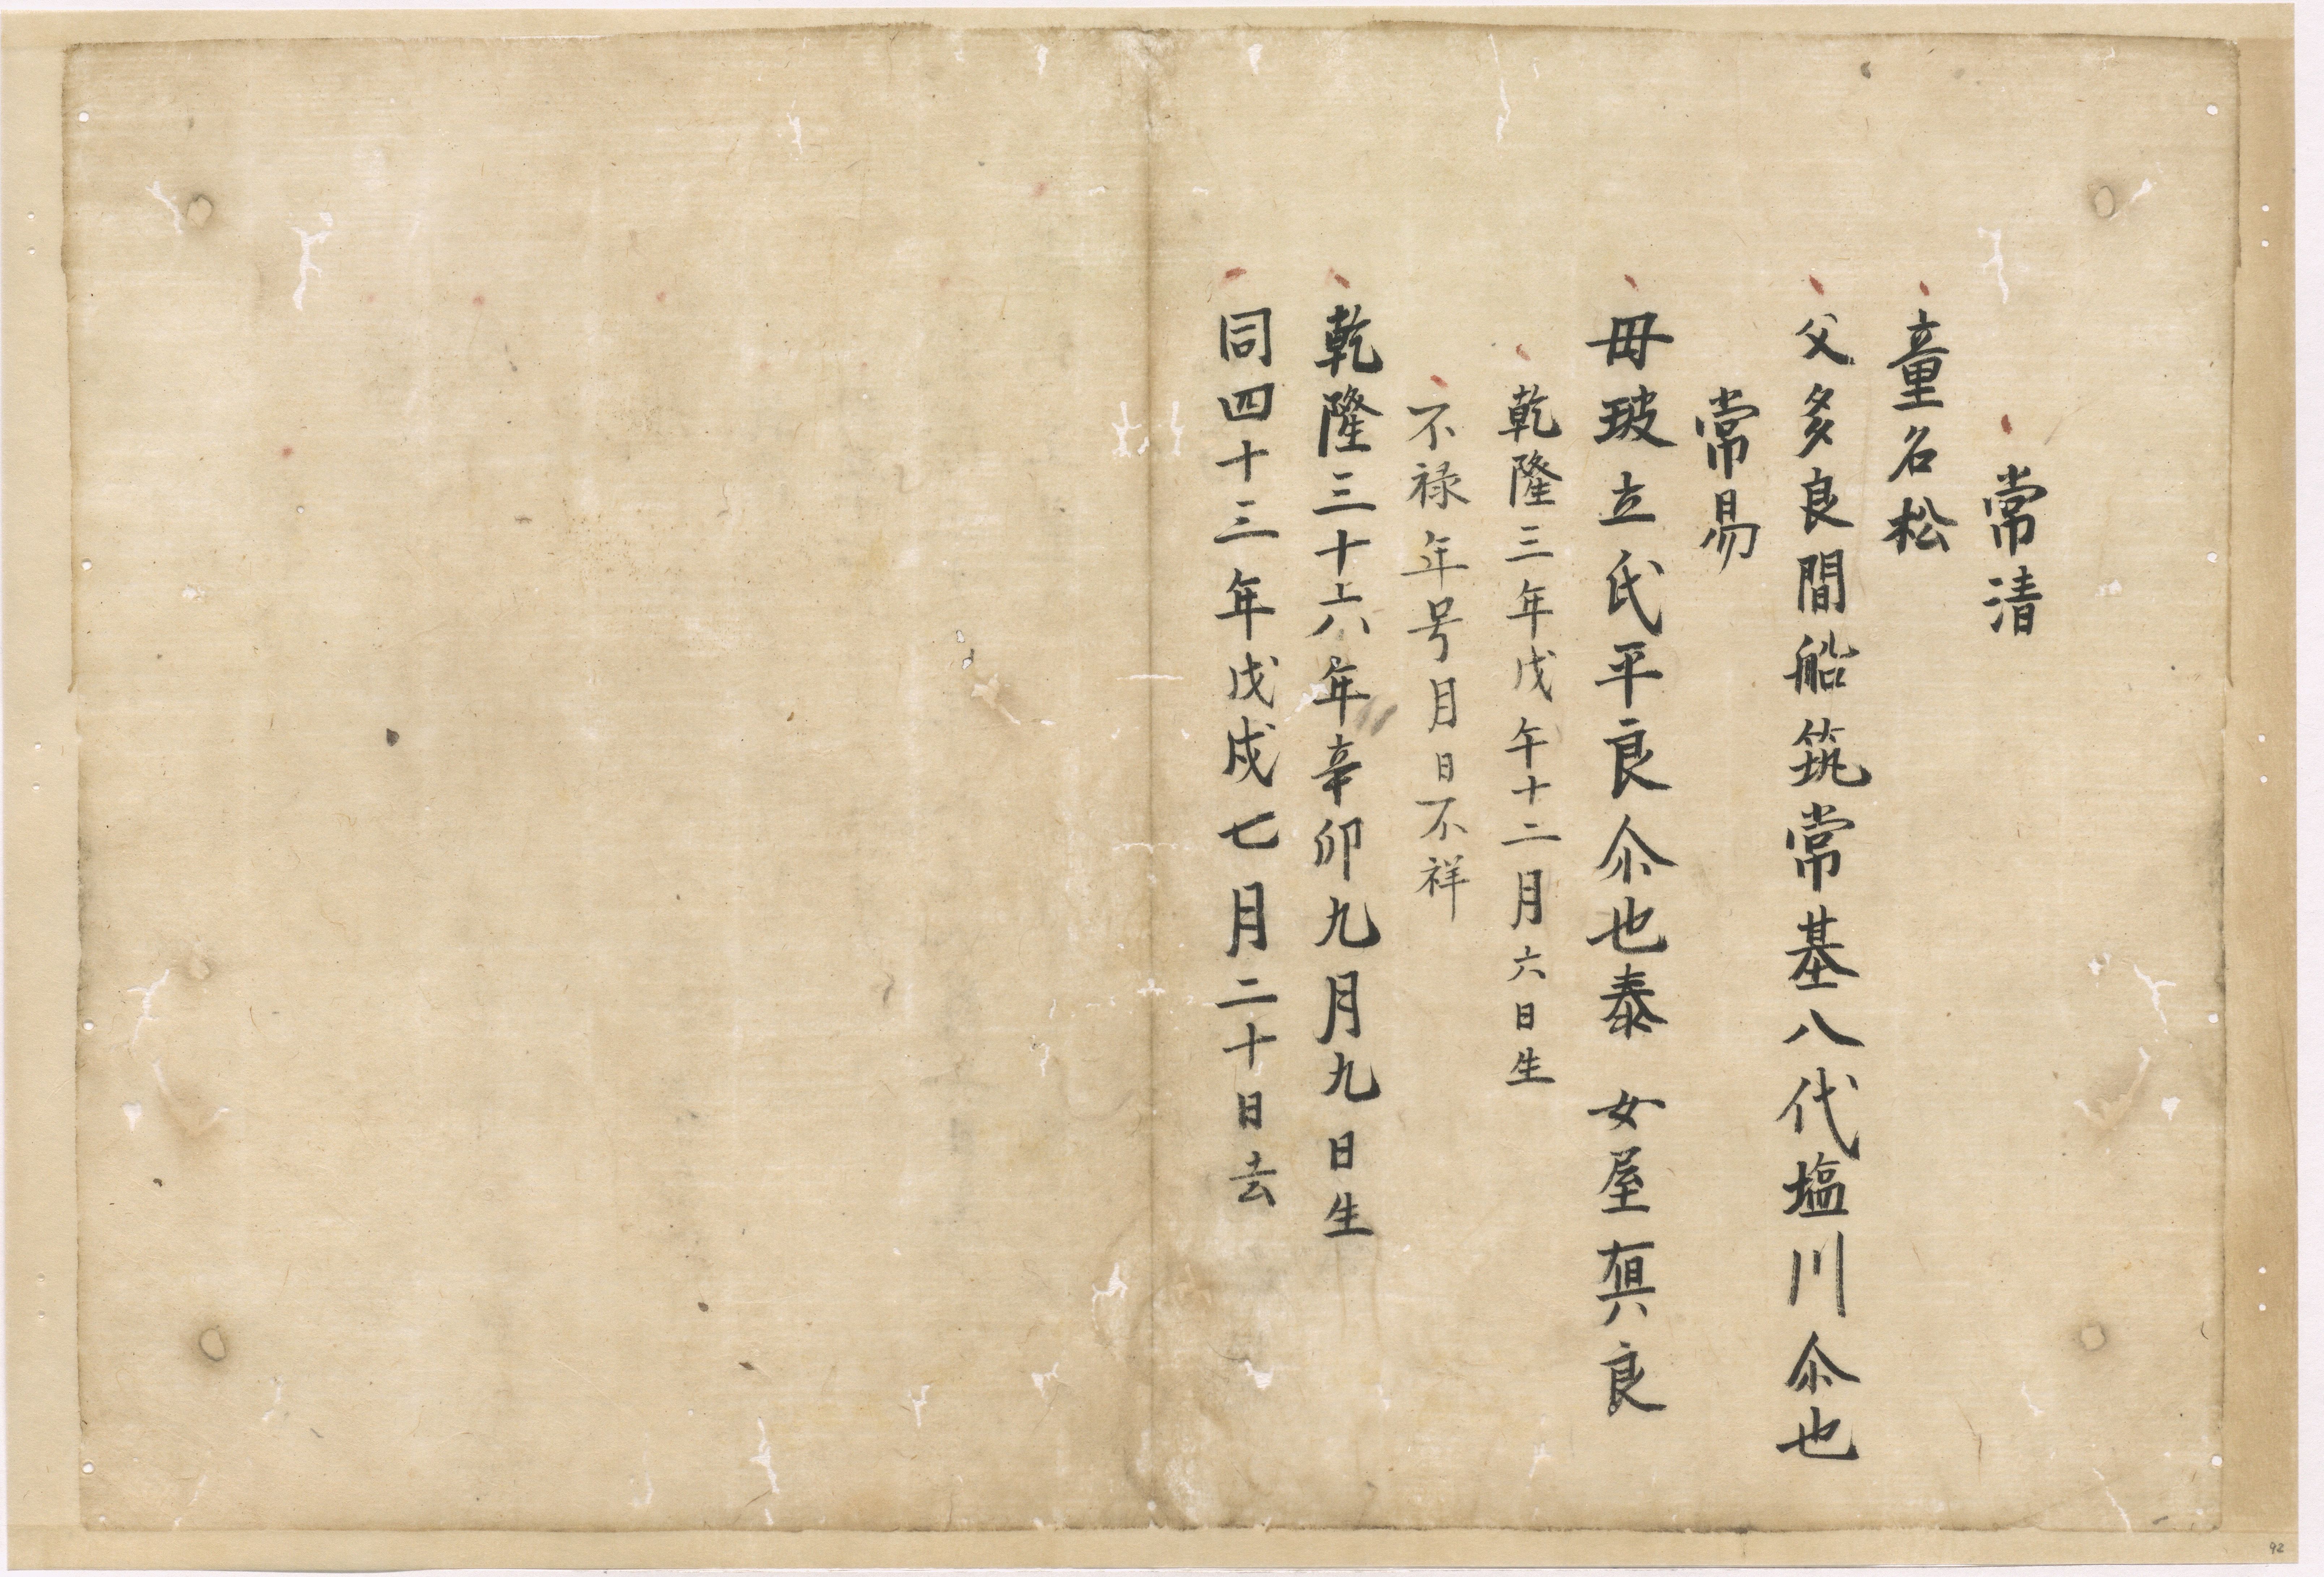 常清
童名松
父多良間船筑常基八代塩川尒也
常易
母玻立氏平良尒也泰 女屋真良
乾隆三年戊午十二月六日生
不禄年号月日不祥
乾隆三十六年辛卯九月九日生
同四十三年戊戌七月二十日去
92